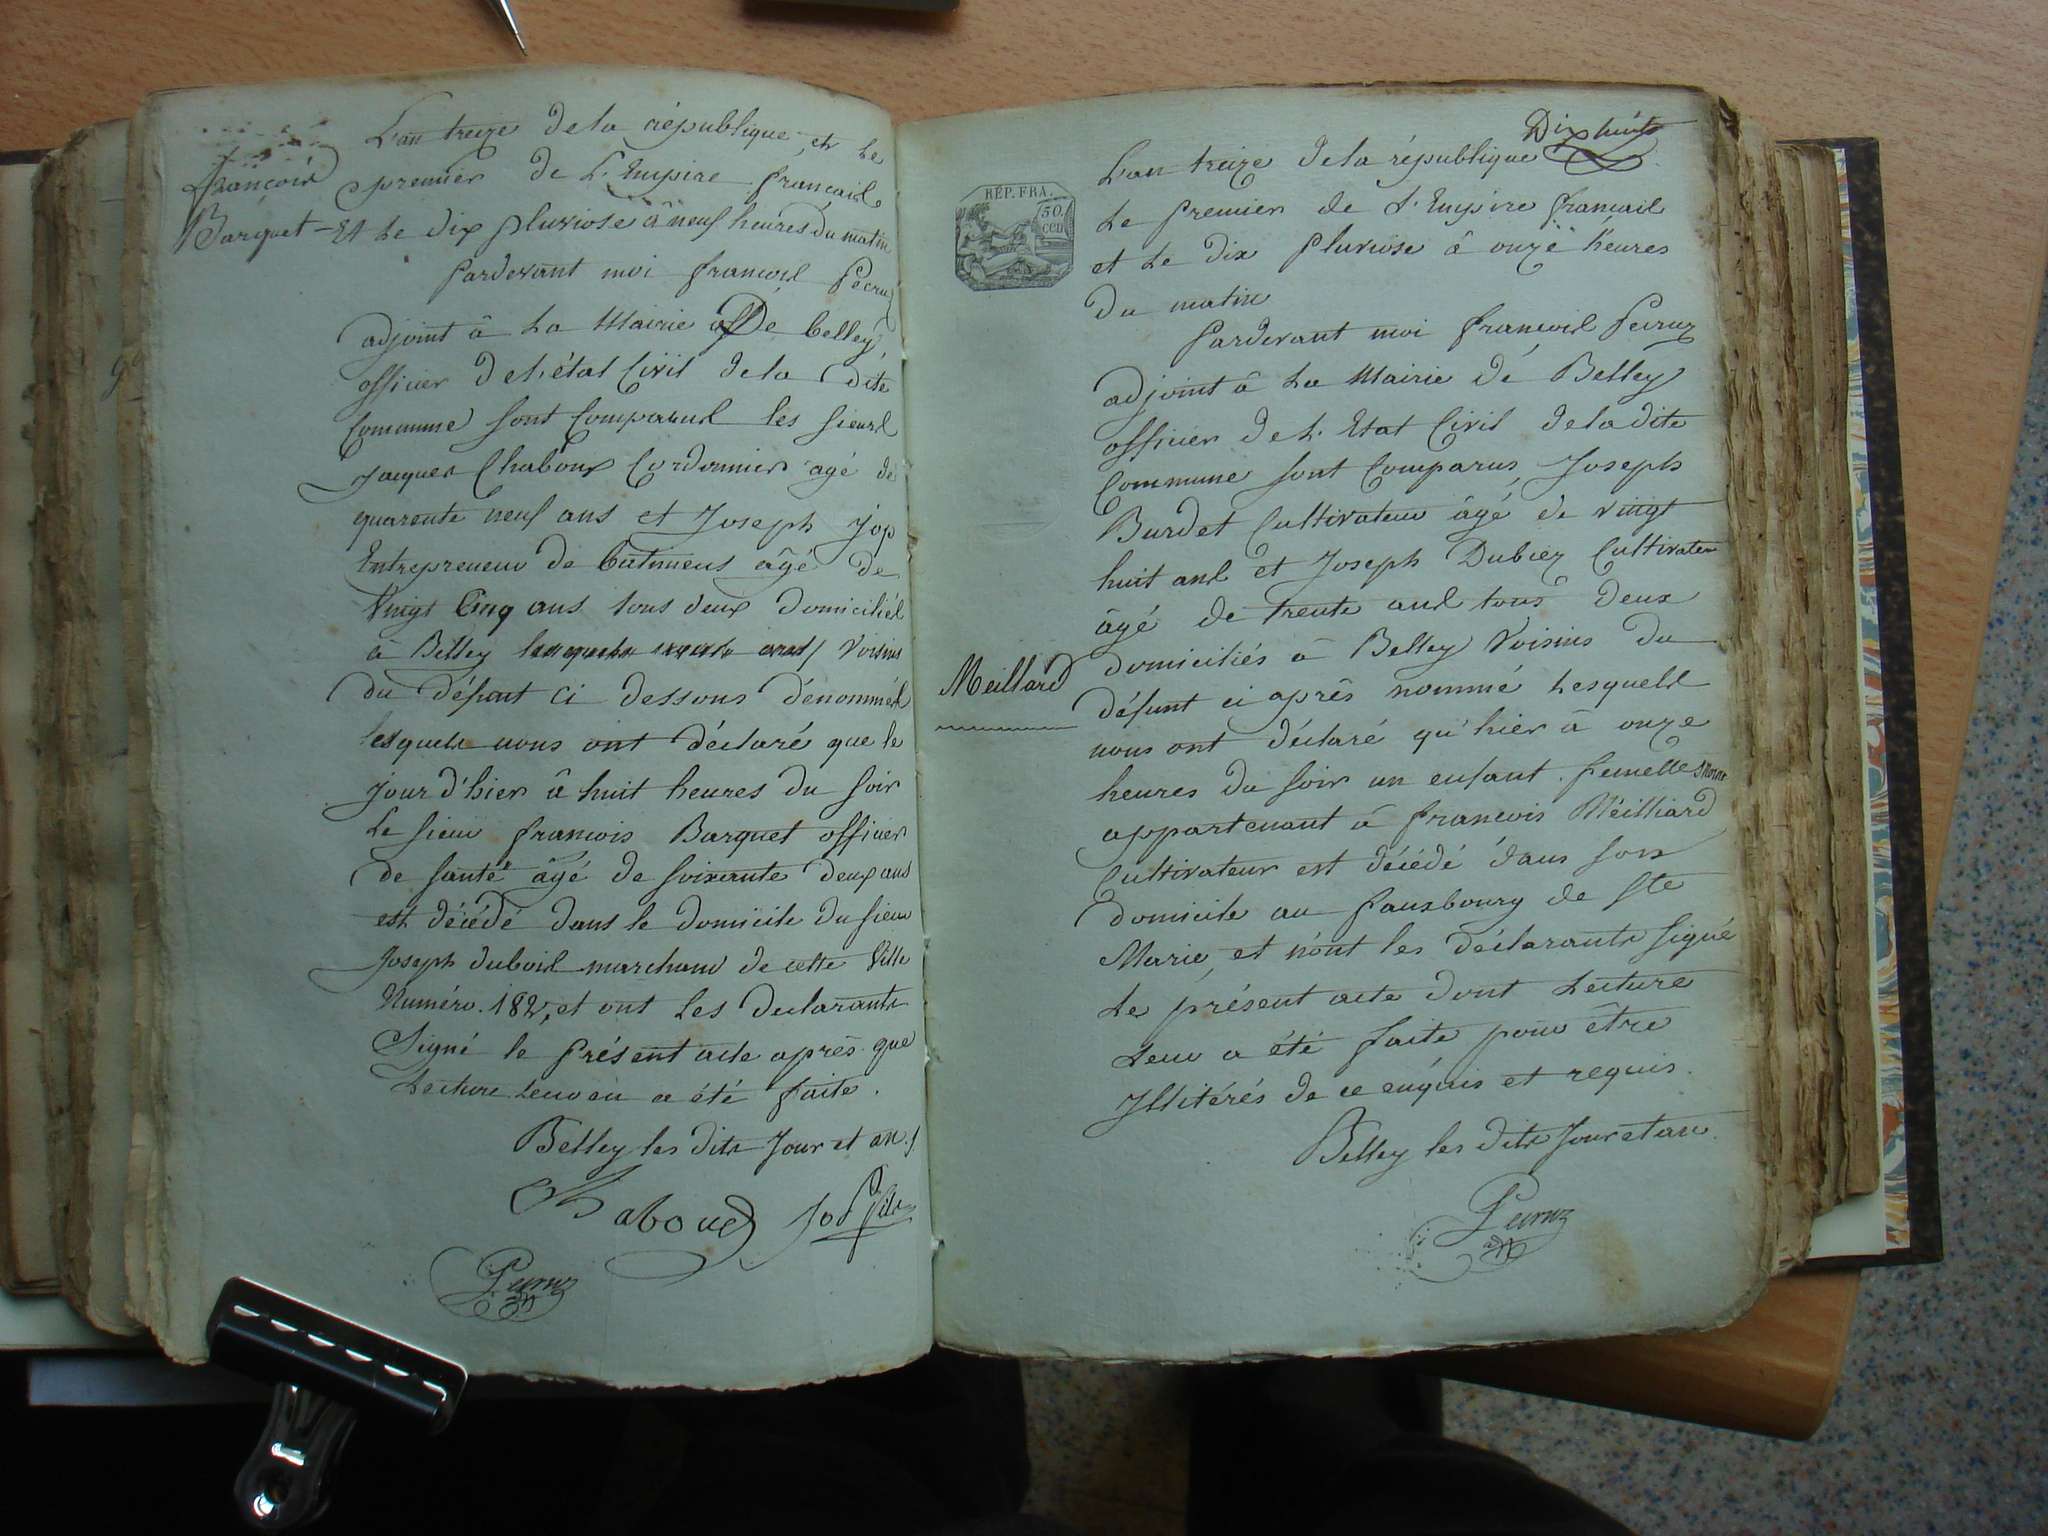 L'an treize de la république, et le
françois premier de L'Empire françois
Barquet - Et le dix pluviose â neuf heures du matin
Pardevant moi françois Pecruz
adjoint â La Mairie De belley,
officier de L'état Civil de la dite
Commune sont Comparus les sieurs
Jacques Chaboux Cordonnier agé de
quarente neuf ans et Joseph Jop
Entrepreneur de batimens âgé de
Vingt Cinq ans tous deux domiciliés
à Belley Voisins
du défunt ci dessous dénommés
lesquels nous ont déclaré que le
jour d'hier â huit heures du soir
Le sieur françois Barquet officier
de santé âgé de soixante deux ans
est décédé dans le domicile du sieur
Joseph dubois marchand de cette Ville
Numéro. 182, et ont Les declarants
Signé le Présent acte après que
Lecture leur en a été faite.
Belley les dits Jour et an
Chaboud Jop fils
Pecruz
Dix huit
L'an treize de la république
REP. FRA.
50.
cen
Le Premier de L'Empire françois
et le dix Pluviose â onze heures
du matin
Pardevant moi françois Pecruz
adjoint â La Mairie dé Belley
officier de L'Etat Civil de la dite
Commune sont Comparus, Joseph
Burdet Cultivateur âgé de vingt
huit ans et Joseph Dubiez Cultivateur
âgé de trente ans tous deux
domiciliés â Belley Voisins du
Meillard
défunt ci après nommé Lesquels
nous ont déclaré qu'hier â onze
heures du soir un enfant femelle
appartenant â françois Meilliard
Cultivateur est décédé dans son
domicile au fauxbourg de Ste
Marie, et n'ont les déclarants signé
Le présent acte dont Lecture
Leur a été faite pour être
Illitérés de ce enquis et requis.
Belley les dits Jour et an.
Pecruz